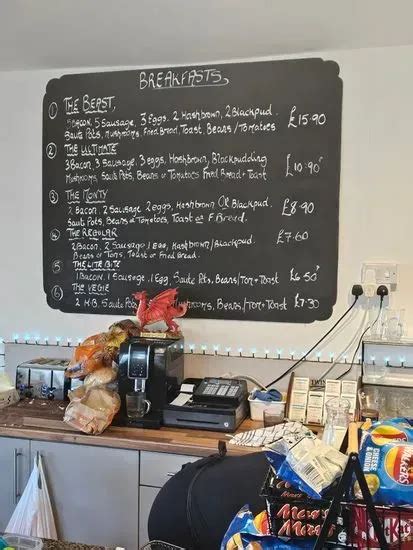 BREAKFASTS
1 THE BEAST,
Bacon, 5 Sausage, 3 Eggs, 2 Hashbrown, 2 Blackpud. £15.90
Saute Pots, Mushrooms, Fried Bread, Toast, Beans/Tomatoes
2 THE ULTIMATE
3 Bacon, 3 Sausage, 3 eggs, Hashbrown, Blackpudding £10.90
Mushrooms, Saute Pots, Beans or Tomatoes Fried Bread + Toast
3 THE MONTY
2 Bacon, 2 Sausage 2 eggs, Hashbrown OR Blackpud. £8.90
Saute Pots, Beans or Tomatoes, Toast or F. Bread.
4 THE REGULAR £7.60
2 Bacon, 2 Sausage 1 Egg, Hashbrown/Blackpud.
Beans or Toms, Toast or Fried Bread.
5 THE LITE BITE
1 Bacon, 1 Sausage, 1 Egg, Saute Pots, Beans/Tom + Toast £6.50
6 THE VEGIE
2 H.B, Saute Pots Mushrooms, Beans/Tom + Toast £7.30
CHEESE
& ONION
Mars
Mars